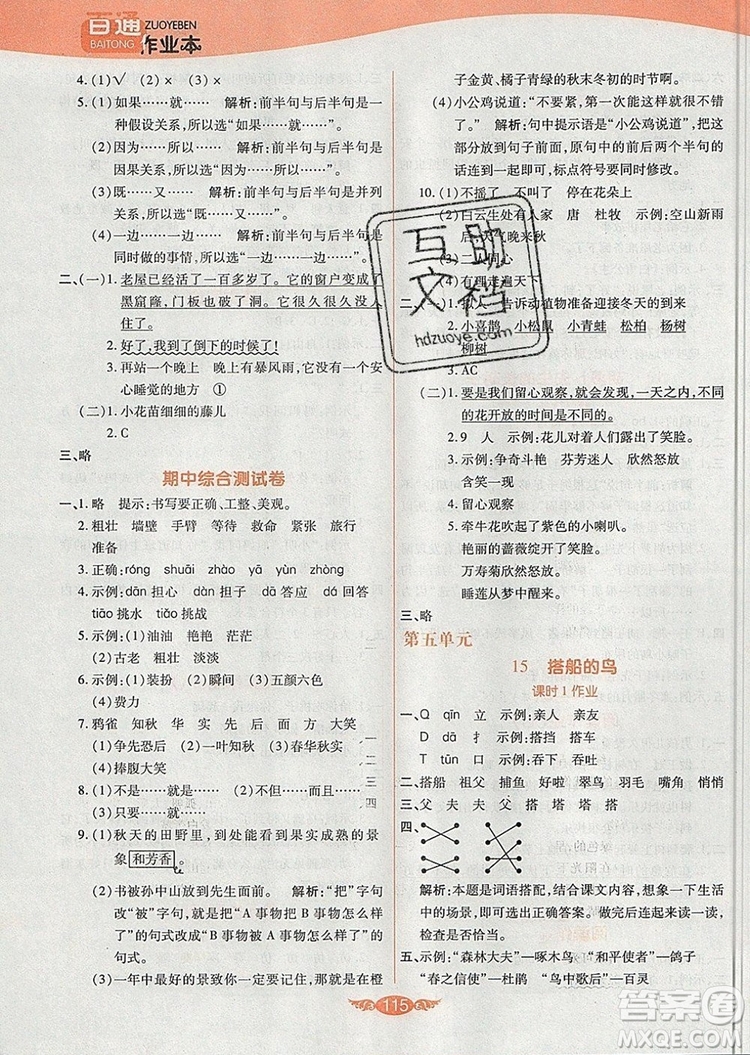 百通
BAITONG
ZUOYEBEN
作业本
4. (1)√ (2)× (3)×
5. (1)如果……就…… 解析:前半句与后半句是一
种假设关系,所以选“如果……就……”
(2)因为……所以…… 解析:前半句与后半句是
因果关系,所以选“因为……所以……”
(3)既……又…… 解析:前半句与后半句是并列
关系,所以选“既……又……”
(4)一边……一边…… 解析:前半句与后半句是
同时做的事情,所以选“一边……一边……”
二、(一)1. 老屋已经活了一百多岁了。它的窗户变成了
黑窟窿,门板也破了洞。它很久很久没人住了。
2. 好了,我到了倒下的时候了!
3. 再站一个晚上 外面有暴风雨,我找不到一个
安心睡觉的地方 ①
(二)1. 小花苗细细的藤儿
2. C
三、略
期中综合测试卷
一、1. 略 提示:书写要正确、工整、美观。
2. 粗壮 墙壁 手臂 等待 救命 紧张 旅行
准备
3. 正确:róng shuāi zhào yā yūn zhòng
4. 示例:dān 担心 dàn 担子 dā 答应 dá 回答
tiāo 挑水 tiǎo 挑战
5. 示例:(1)油油 艳艳 茫茫
(2)古老 粗壮 淡淡
6. 示例:(1)装扮 (2)瞬间 (3)五颜六色
(4)费力
7. 鸦雀 知秋 华 实 先 后 面 方 大笑
(1)争先恐后 (2)一叶知秋 (3)春华秋实
(4)捧腹大笑
8. (1)不是……就是…… (2)不但……而且……
(3)只要……就……
9. (1)秋天的田野里,到处能看到果实成熟的景
象和芳香。
(2)书被孙中山放到先生面前。 解析:“把”字句
改“被”字句,就是要把“A 事物把 B 事物怎么样
了”的句式改成“B 事物被 A 事物怎么样了”
的句式。
(3)一年中最好的景致你一定要记住,那就是在橙
子金黄、橘子青绿的秋末冬初的时节啊。
(4)小公鸡说道:“不要紧,第一次能这样就很不错
了。” 解析:句中提示语是“小公鸡说道”,要把这
部分放到句子前面,原句中的前后两个半句的
话连到一起,标点符号要同时修改。
10. (1)不摇了 不叫了 停在花朵上
(2)白云生处有人家 唐 杜牧 示例:空山新雨
后,天气晚来秋
(3)二人同心
(4)有理走遍天下
二、(一)1. 拟人 告诉动植物准备迎接冬天的到来
2. 小喜鹊 小松鼠 小青蛙 松柏 杨树
柳树
3. AC
(二)1. 要是我们留心观察,就会发现,一天之内,不同
的花开放的时间是不同的。
2. 9 人 示例:花儿对着人们露出了笑脸。
3. 示例:争奇斗艳 芬芳迷人 欣然怒放
含笑一现
4. 留心观察
5. 牵牛花吹起了紫色的小喇叭。
艳丽的蔷薇绽开了笑脸。
万寿菊欣然怒放。
睡莲从梦中醒来。
三、略
第五单元
15. 搭船的鸟
课时1作业
一、Q qīn 立 示例:亲人 亲友
D dā 扌 示例:搭挡 搭车
T tūn 口 示例:吞下 吞吐
二、搭船 祖父 捕鱼 好啦 翠鸟 羽毛 嘴角 悄悄
三、父 夫 夫 父 搭 塔 塔 搭
四、
解析:本题是词语搭配,结合课文内容,想象一下生活
中的情景,连出正确答案。做完后记得连起来读一读,
检查是否恰当。
五、示例:“森林大夫”→啄木鸟 “和平使者”→鸽子
“春之信使”→杜鹃 “鸟中歌后”→百灵
115
互助文档
hdzuoye.com
答案圈
MXQE.COM